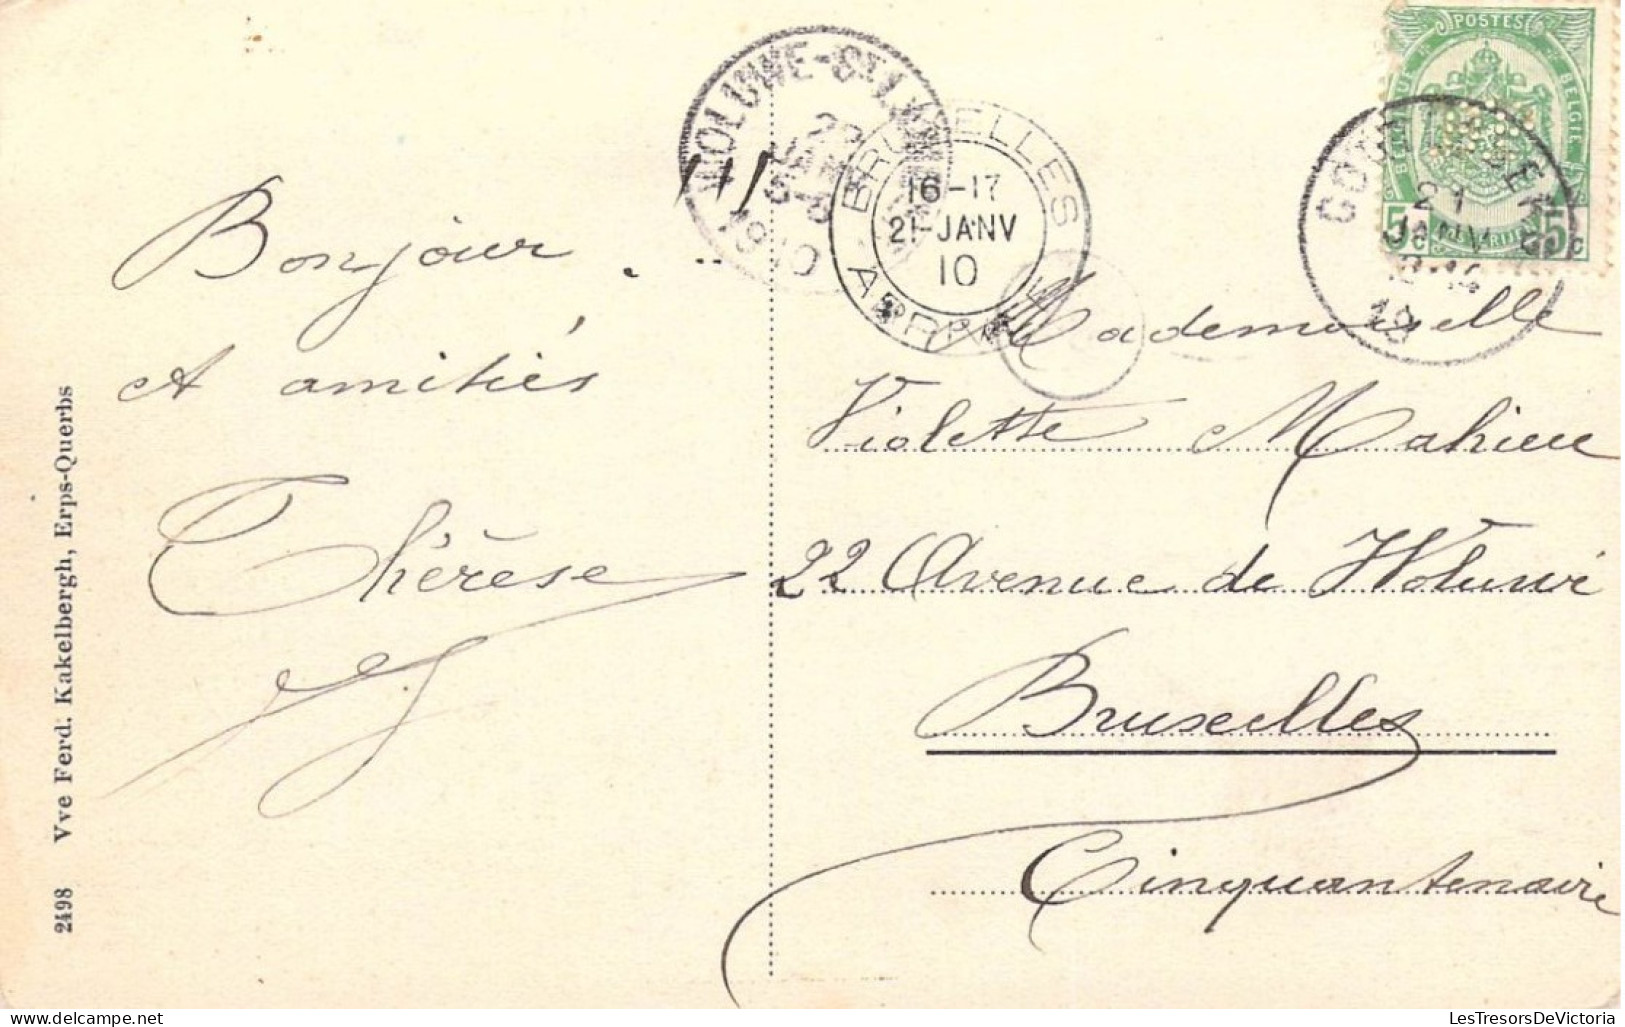 Bonjour
et amitiés
Thérèse
Mademoiselle
Violette Mahieu
22 Avenue de Woluwé
Bruxelles
Cinquantenaire
2498 Vve Ferd. Kakelbergh, Erps-Querbs
POSTES
BELGIQUE
BELGIË
5c 5c
WOLUWE-St
1910
BRUXELLES
16-17
21-JANV
10
21
JANV
LesTresorsDeVictoria
www.delcampe.net/store/LesTresorsDeVictoria